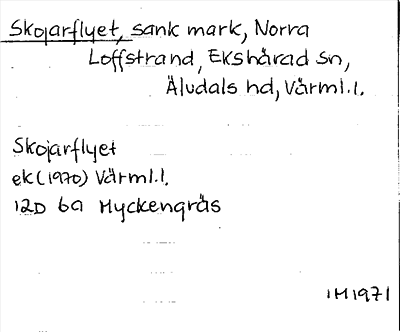 Skojarflyet, sank mark, Norra
Loffstrand, Ekshärad sn,
Älvdals hd, Värml.l.
Skojarflyet
ek (1970) Värml.l.
12D 6a Myckengräs
IH 1971